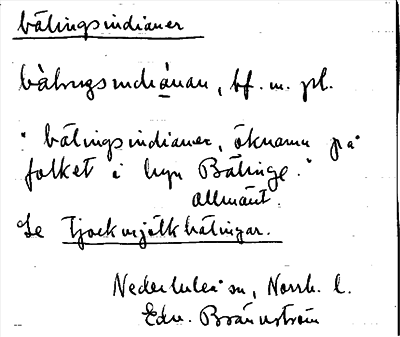 bälingsindianer
bä̀lıngsındı̀ánan, bf. m. pl.
"bälingsindianer, öknamn på
folket i byn Bälinge."
allmänt.
Se Tjockmjölkbälingar.
Nederluleå sn, Norrb. l.
Edv. Brännström